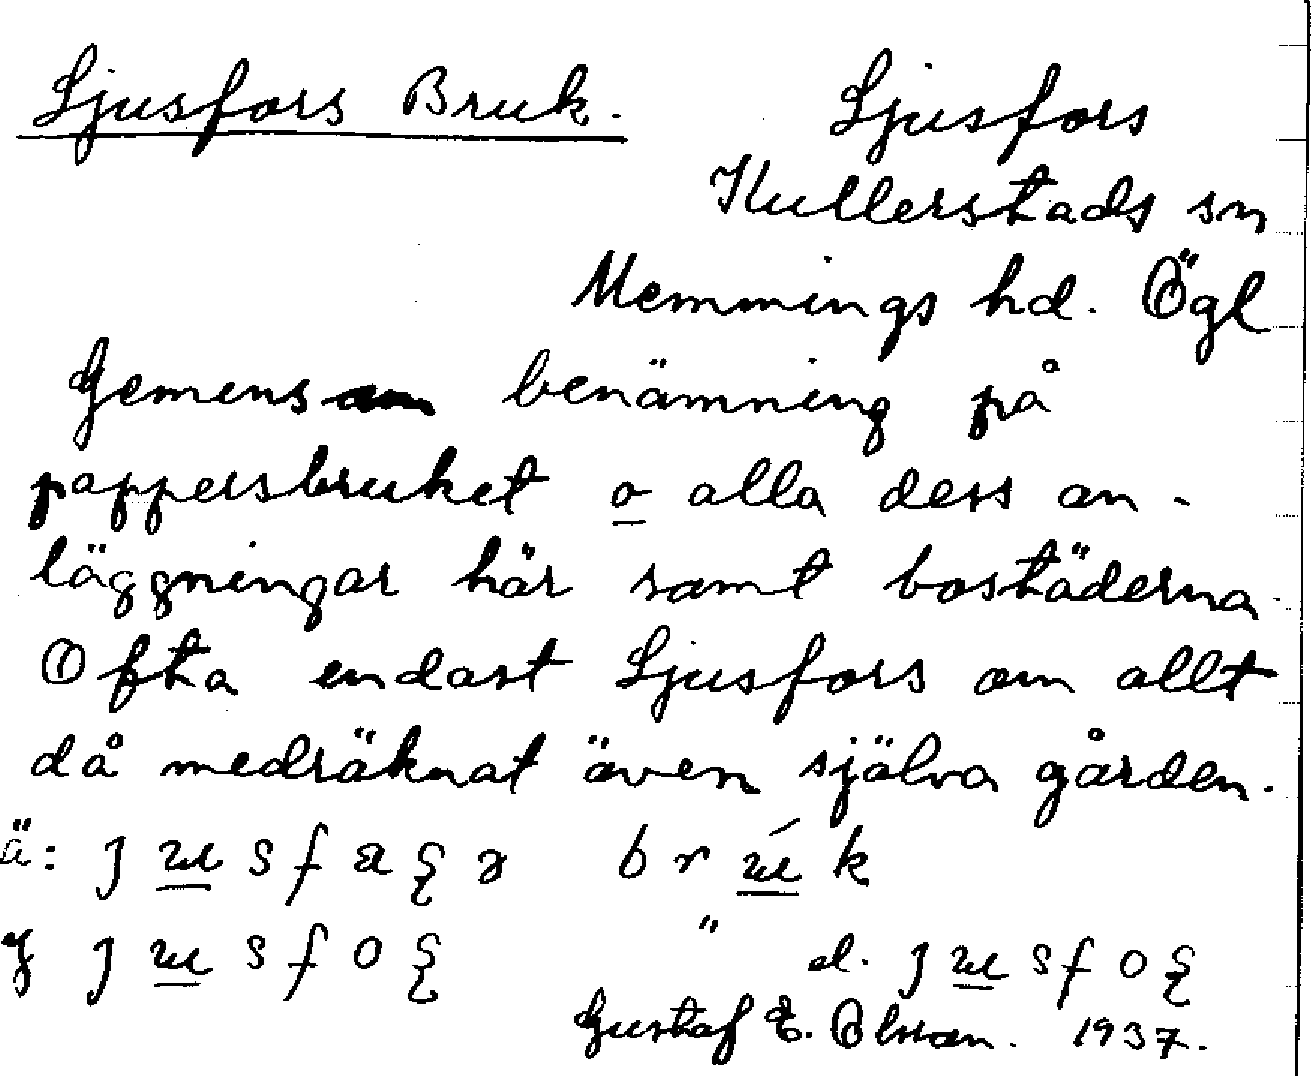 Ljusfors Bruk.
Ljusfors
Kullerstads sn
Memmings hd. Ögl
Gemensam benämning på
pappersbruket o alla dess an-
läggningar här samt bostäderna
Ofta endast Ljusfors om allt
då medräknat även själva gården.
ä: j u s f a ʂ ɂ b r ú k
y j u s f o ʂ " el. j u s f o ʂ
Gustaf E. Olsson. 1937.